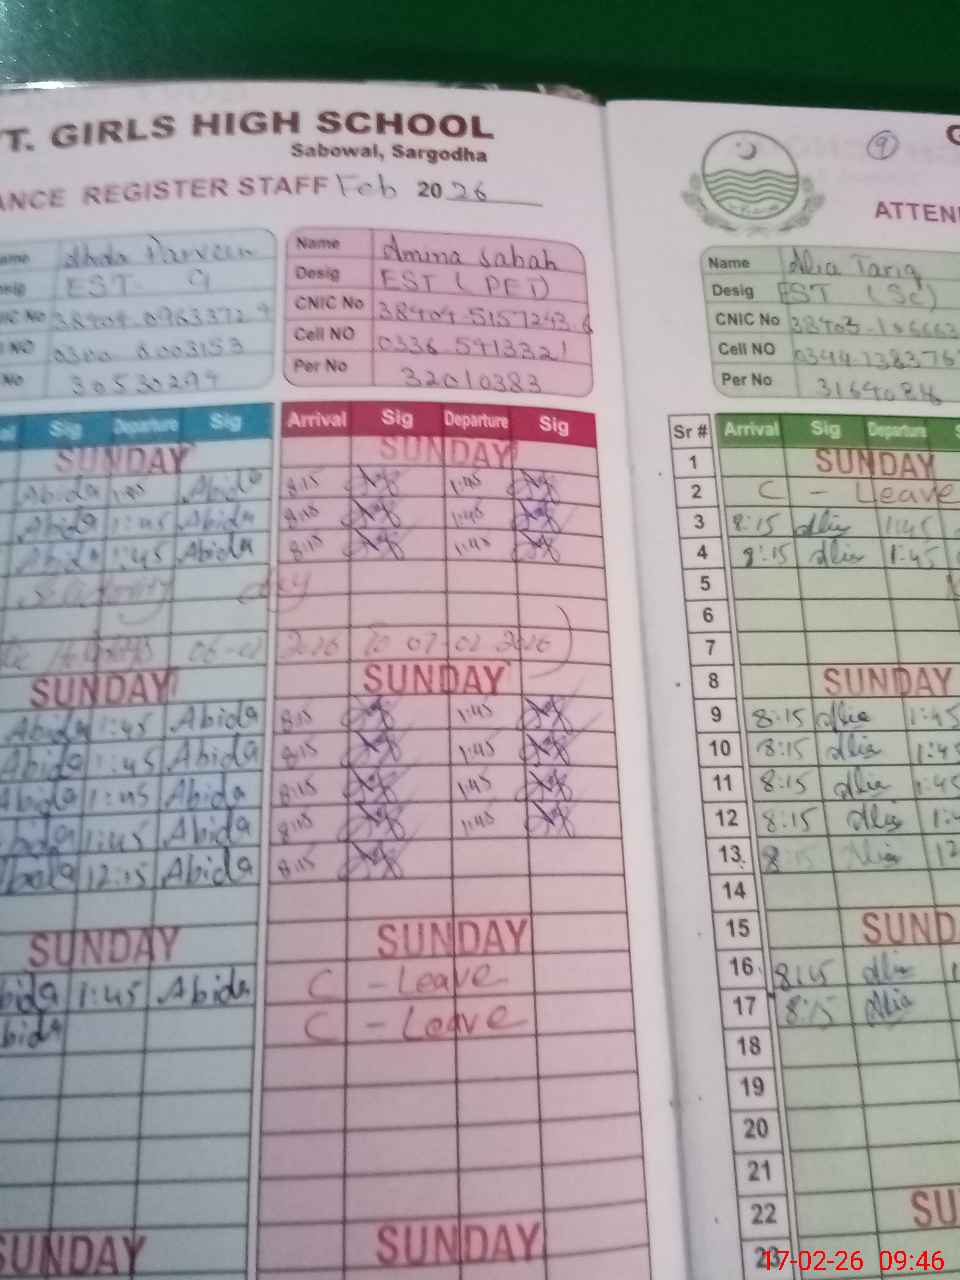 T. GIRLS HIGH SCHOOL
Sabowal, Sargodha
ANCE REGISTER STAFF Feb 2026
Name Abida Parveen
EST. 9
0300 8003153
30530299
Name Amina Sabah
Desig EST (PET)
CNIC No 38404-5157243-6
Cell NO 0336 5413321
Per No 32010383
Sig Departure Sig
Arrival Sig Departure Sig
SUNDAY SUNDAY
Abida 1:45 Abida 8:15 1:45
Abida 1:45 Abida 8:15 1:45
Abida 1:45 Abida 8:15 1:45
Solidarity day
06-02 2026 to 07-02 2026)
SUNDAY SUNDAY
Abida 1:45 Abida 8:15 1:45
Abida 1:45 Abida 8:15 1:45
Abida 1:45 Abida 8:15 1:45
bida 1:45 Abida 8:15 1:45
12:15 Abida 8:15
SUNDAY SUNDAY
bida 1:45 Abida C - Leave
bida C - Leave
SUNDAY SUNDAY
9
G
ATTEN
Name Alia Tariq
Desig EST (Sc)
CNIC No
Cell NO
Per No
Sr # Arrival Sig Departure S
1 SUNDAY
2 C - Leave
3 8:15 Alia 1:45
4 8:15 Alia 1:45
5
6
7
8 SUNDAY
9 8:15 Alia 1:45
10 8:15 Alia 1:4
11 8:15 Alia 1:45
12 8:15 Alia 1:4
13 8:15 Alia 12
14
15 SUND
16 8:15 Alia 1
17 8:15 Alia
18
19
20
21
22 SU
23
17-02-26 09:46